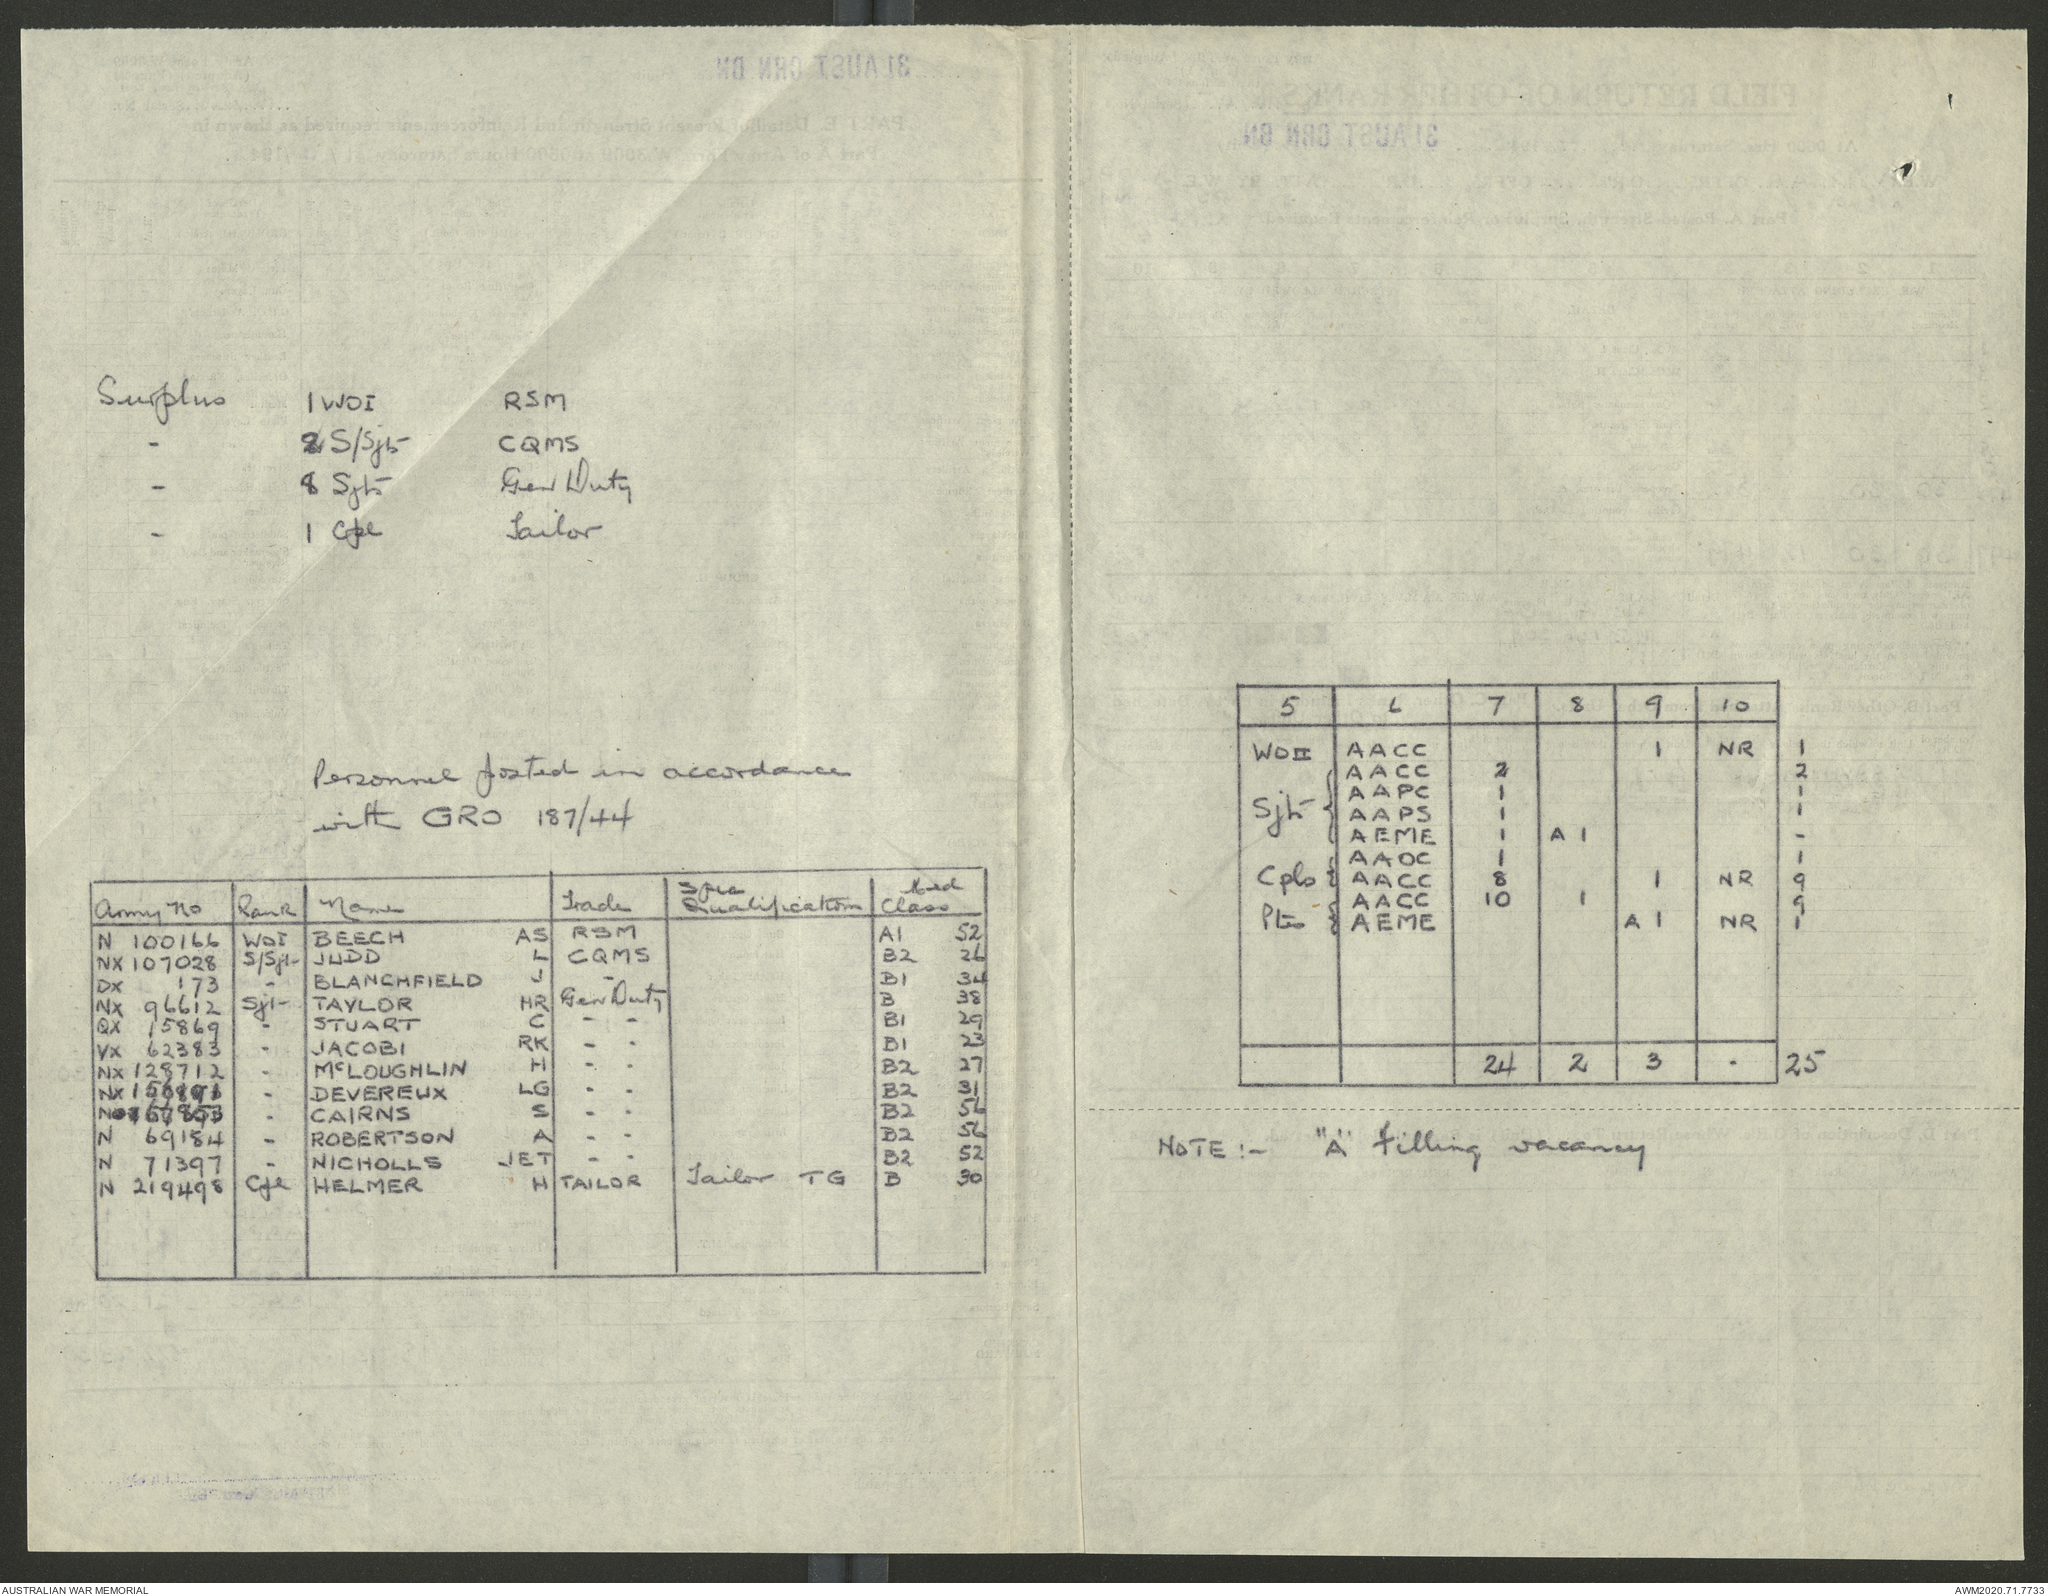 Surplus 1 WOI RSM
- 2 S/Sjt CQMS
- 8 Sjt Gen Duty
- 1 Cpl Tailor
Personnel posted in accordance
with GRO 187/44
Army No Rank Name Trade Spec Qualification Med Class
N 100166 WOI BEECH AS RSM A1 52
NX 107028 S/Sjt JUDD L CQMS B2 26
DX 173 - BLANCHFIELD J - B1 34
NX 96612 Sjt TAYLOR HR Gen Duty B 38
QX 15869 - STUART C - - B1 29
VX 62383 - JACOBI RK - - B1 23
NX 128712 - McLOUGHLIN H - - B2 27
NX - DEVEREUX LG - - B2 31
N - CAIRNS S B2 56
N 69184 - ROBERTSON A - - B2 56
N 71397 - NICHOLLS JET - - B2 52
N 219498 Cpl HELMER H TAILOR Tailor TG B 30
5 6 7 8 9 10
WOII AACC 1 NR 1
Sjt AACC 2 2
AAPC 1 1
AAPS 1 1
AEME 1 A 1 -
Cpls AAOC 1 1
AACC 8 1 NR 9
Ptes AACC 10 1 9
AEME A 1 NR 1
24 2 3 - 25
NOTE :- "A" filling vacancy
AUSTRALIAN WAR MEMORIAL
AWM2020.71.7733